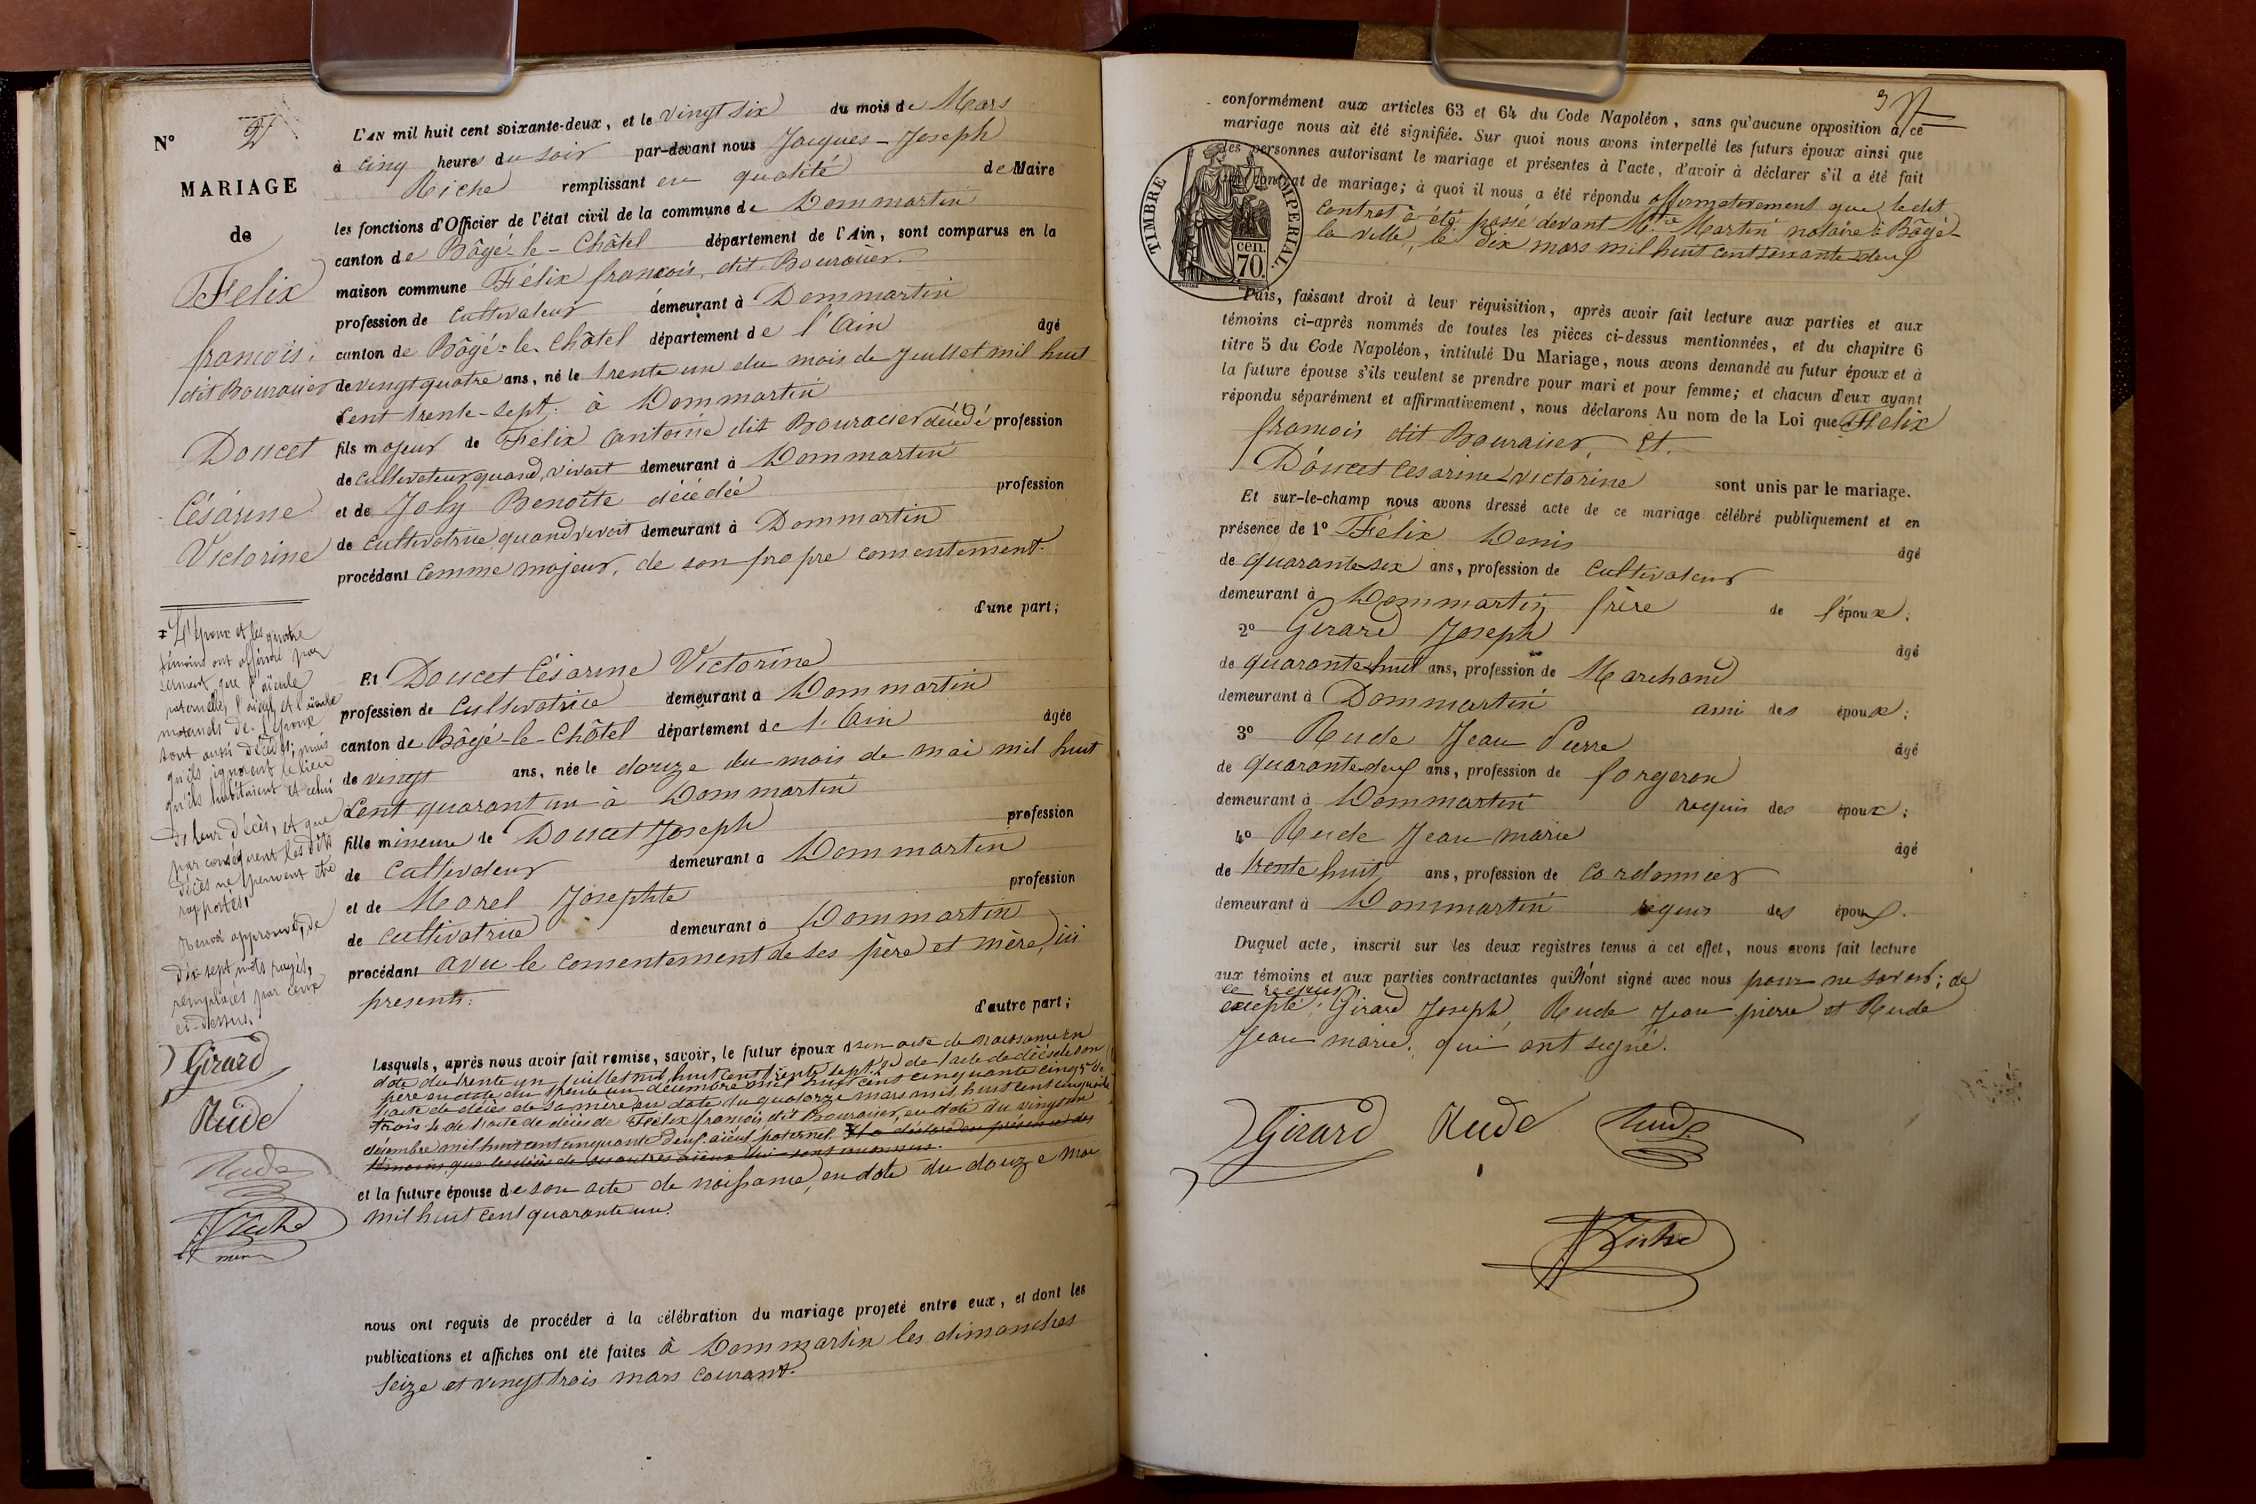 N°
MARIAGE
de
Félix
françois,
dit Bouracier
Doucet
Césarine
Victorine
L'époux et les quatre
témoins ont affirmé par
serment que l'aïeule
paternelle, l'aïeul et l'aïeule
maternels de l'époux
sont aussi décédés; mais
qu'ils ignorent le lieu
qu'ils habitaient et celui
de leur décès, et que
par conséquent les dits
décès ne peuvent être
rapportés,
Renvoi approuvé, de
dix sept mots rayés,
remplacés par ceux
ci-dessus.
Girard
Rude
Rude
Riche
maire
L'AN mil huit cent soixante-deux, et le vingt six du mois de Mars
à cinq heures du soir par-devant nous Jacques-Joseph
Riche remplissant en qualité de Maire
les fonctions d'Officier de l'état civil de la commune de Dommartin
canton de Bâgé-le-Châtel département de l'Ain, sont comparus en la
maison commune Félix françois, dit Bouracier.
profession de cultivateur demeurant à Dommartin
canton de Bâgé-le-Châtel département de l'Ain âgé
de vingt quatre ans, né le trente un du mois de Juillet mil huit
cent trente-sept, à Dommartin
fils majeur de Félix Antoine dit Bouracier décédé profession
de cultivateur quand vivait demeurant à Dommartin
et de Joly Benoîte décédée profession
de cultivatrice quand vivait demeurant à Dommartin
procédant comme majeur, de son propre consentement.
d'une part;
Et Doucet Césarine Victorine
profession de cultivatrice demeurant à Dommartin
canton de Bâgé-le-Châtel département de l'Ain âgée
de vingt ans, née le douze du mois de mai mil huit
cent quarant un à Dommartin
fille mineure de Doucet Joseph profession
de cultivateur demeurant à Dommartin
et de Morel Josephte profession
de cultivatrice demeurant à Dommartin
procédant avec le consentement de ses père et mère, ici
présents.
d'autre part;
Lesquels, après nous avoir fait remise, savoir, le futur époux 1° son acte de naissance en
date du trente un juillet mil huit cent trente sept, 2° de l'acte de décès de son
père en date du trente un décembre mil huit cent cinquante cinq 3° de
l'acte de décès de sa mère en date du quatorze mars mil huit cent cinquante
trois 4° de l'acte de décès de Félix françois dit Bouracier, en date du vingt un
décembre mil huit cent cinquante deux aïeul paternel. Il a déclaré en présence des
témoins, que les décès de ses autres aïeux lui sont inconnus.
et la future épouse de son acte de naissance, en date du douze mai
mil huit cent quarante un.
nous ont requis de procéder à la célébration du mariage projeté entre eux, et dont les
publications et affiches ont été faites à Dommartin les dimanches
seize et vingt trois mars courant.
conformément aux articles 63 et 64 du Code Napoléon, sans qu'aucune opposition à ce
mariage nous ait été signifiée. Sur quoi nous avons interpellé les futurs époux ainsi que
les personnes autorisant le mariage et présentes à l'acte, d'avoir à déclarer s'il a été fait
un contrat de mariage; à quoi il nous a été répondu affirmativement que le dit
contrat a été passé devant Me Martin notaire à Bâgé-
la ville, le dix mars mil huit cent soixante deux
TIMBRE IMPERIAL.
cen.
70.
Puis, faisant droit à leur réquisition, après avoir fait lecture aux parties et aux
témoins ci-après nommés de toutes les pièces ci-dessus mentionnées, et du chapitre 6
titre 5 du Code Napoléon, intitulé Du Mariage, nous avons demandé au futur époux et à
la future épouse s'ils veulent se prendre pour mari et pour femme; et chacun d'eux ayant
répondu séparément et affirmativement, nous déclarons Au nom de la Loi que Félix
françois dit Bouracier, Et.
Doucet Césarine Victorine sont unis par le mariage.
Et sur-le-champ nous avons dressé acte de ce mariage célébré publiquement et en
présence de 1° Félix Denis âgé
de quarante six ans, profession de cultivateur
demeurant à Dommartin frère de l'époux;
2° Girard Joseph âgé
de quarante huit ans, profession de Marchand
demeurant à Dommartin ami des époux;
3° Rude Jean Pierre âgé
de quarante deux ans, profession de forgeron
demeurant à Dommartin requis des époux;
4° Rude Jean Marie âgé
de trente huit ans, profession de cordonnier
demeurant à Dommartin requis des époux.
Duquel acte, inscrit sur les deux registres tenus à cet effet, nous avons fait lecture
aux témoins et aux parties contractantes qui n'ont signé avec nous pour ne savoir; de
ce requis
excepté, Girard Joseph, Rude Jean pierre et Rude
Jean marie, qui ont signé.
Girard Rude Rude
Riche